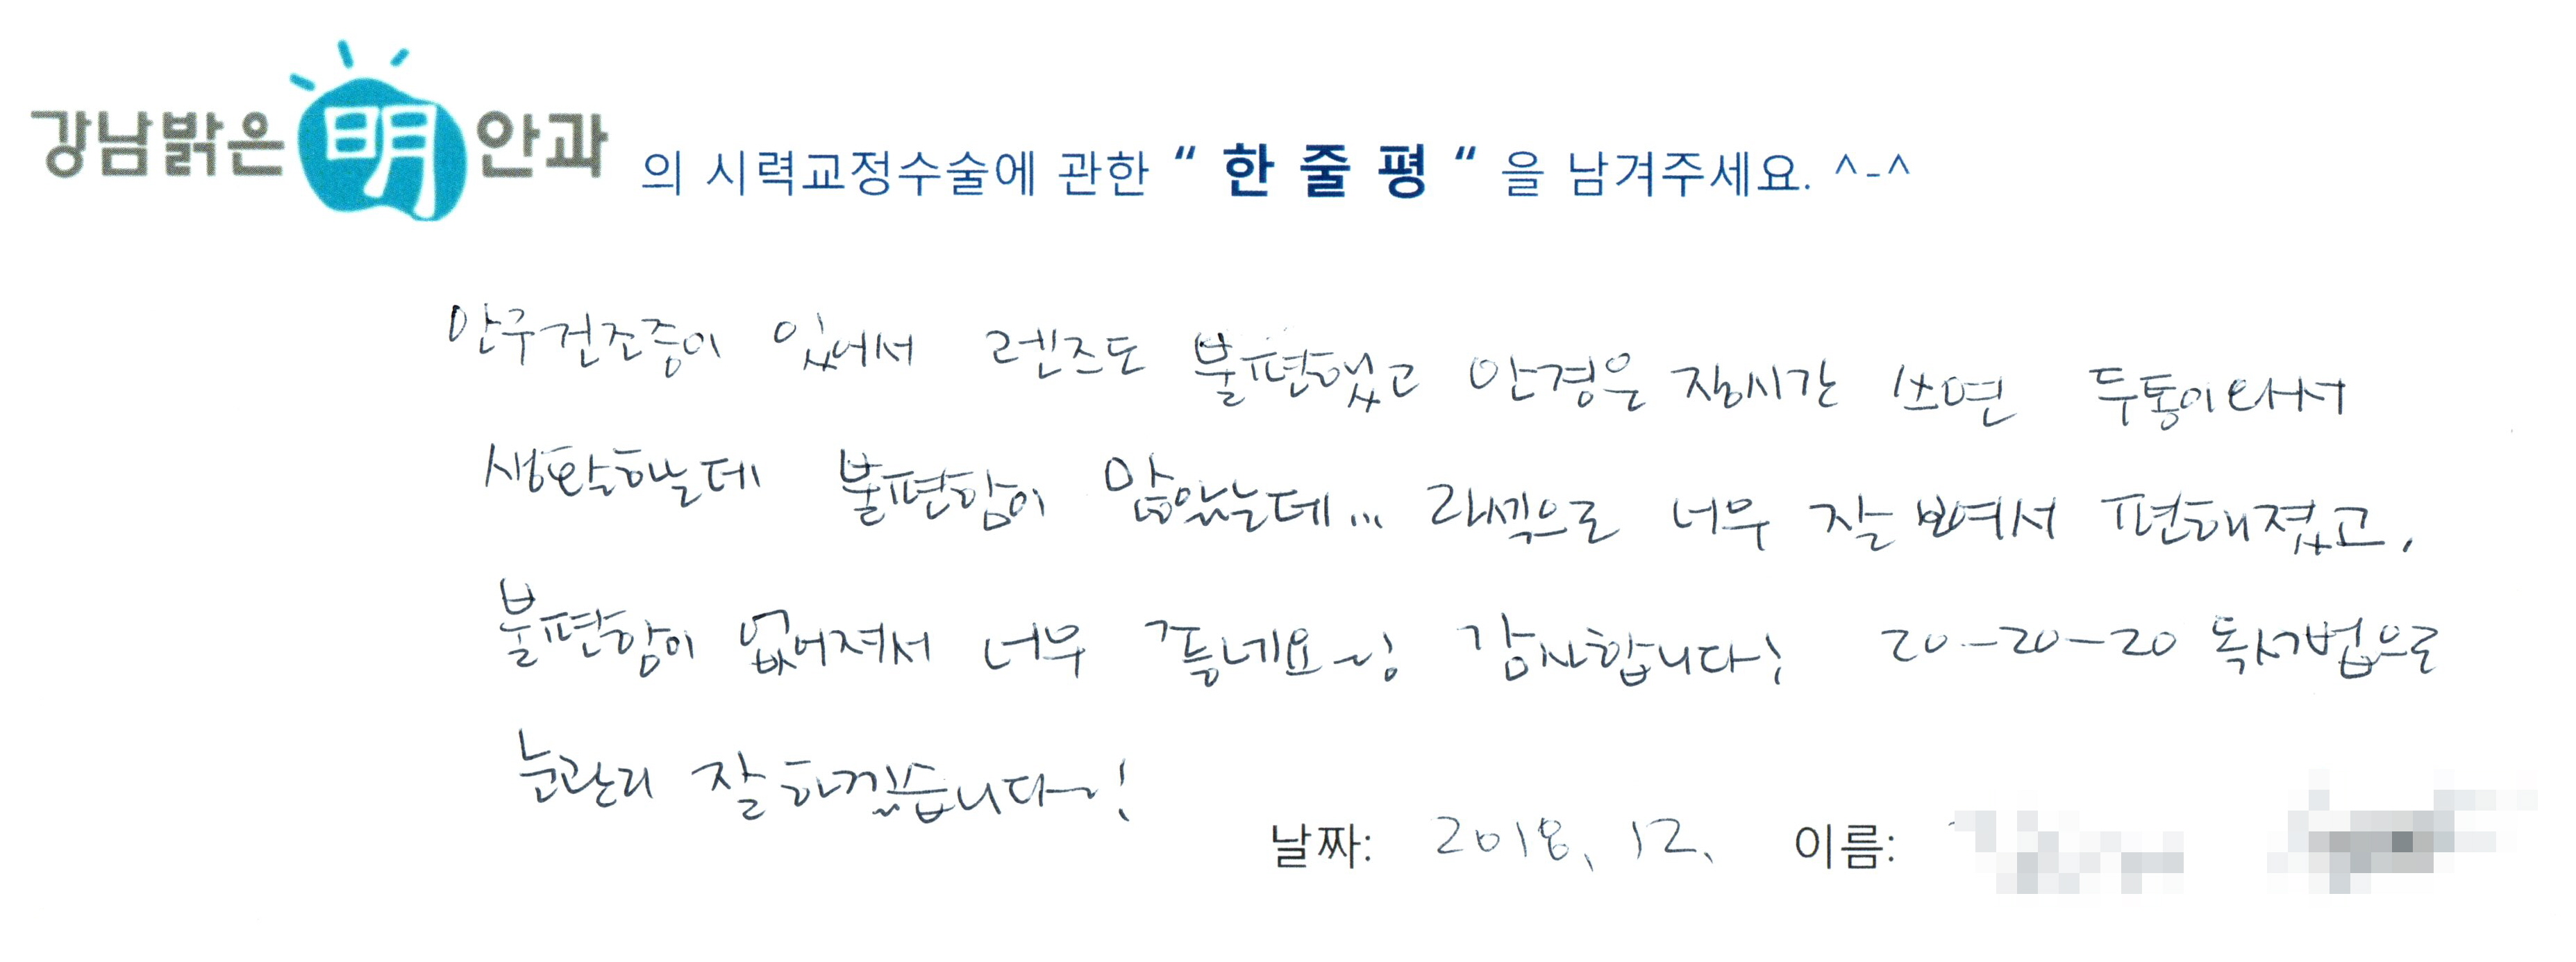 강남밝은明안과 의 시력교정수술에 관한 “ 한 줄 평 “ 을 남겨주세요. ^-^
안구건조증이 있어서 렌즈도 불편했고 안경은 장시간 쓰면 두통이 와서
생활하는데 불편함이 많았는데... 라섹으로 너무 잘 보여서 편해졌고,
불편함이 없어져서 너무 좋네요~! 감사합니다! 20-20-20 독서법으로
눈관리 잘 하겠습니다~!
날짜: 2018. 12. 이름: